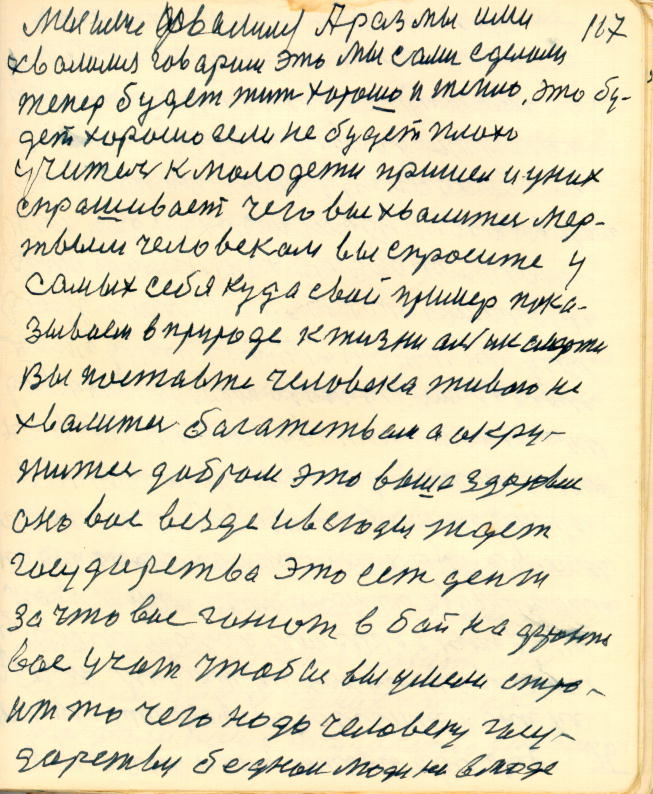 мыими довольны А раз мы ими 117
хвалимся говорим это мы сами сделали
тепер будет жит хорошо и тепло, это бу-
дет хорошо если не будет плохо
учител к молодежи пришел и у них
спрашивает чего вы хвалитес мер-
твым человеком вы спросите у
самых себя куда свой пример пока-
зываем в природе к жизни аль ик смерти
вы поставте человека живого не
хвалитес багатетвам а окру-
жител добром это ваша здоровие
оно вас везде и всюды ждет
государства это ест денги
за что вас гонют в бой на фронт
вас учат чтобы вы умели стро-
ит то чего надо человеку госу-
дарству бедном